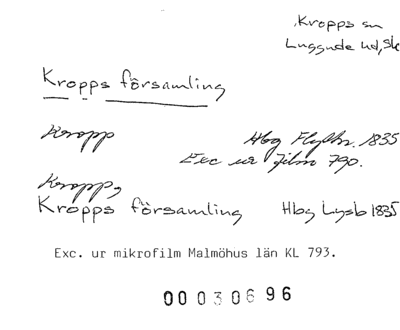 Kropps sn
Luggude hd, Sk
Kropps församling
Kropp Hbg Flyttn. 1835
Exc ur film 790.
Kropps
Kropps församling Hbg Lysb 1835
Exc. ur mikrofilm Malmöhus län KL 793.
00 030696